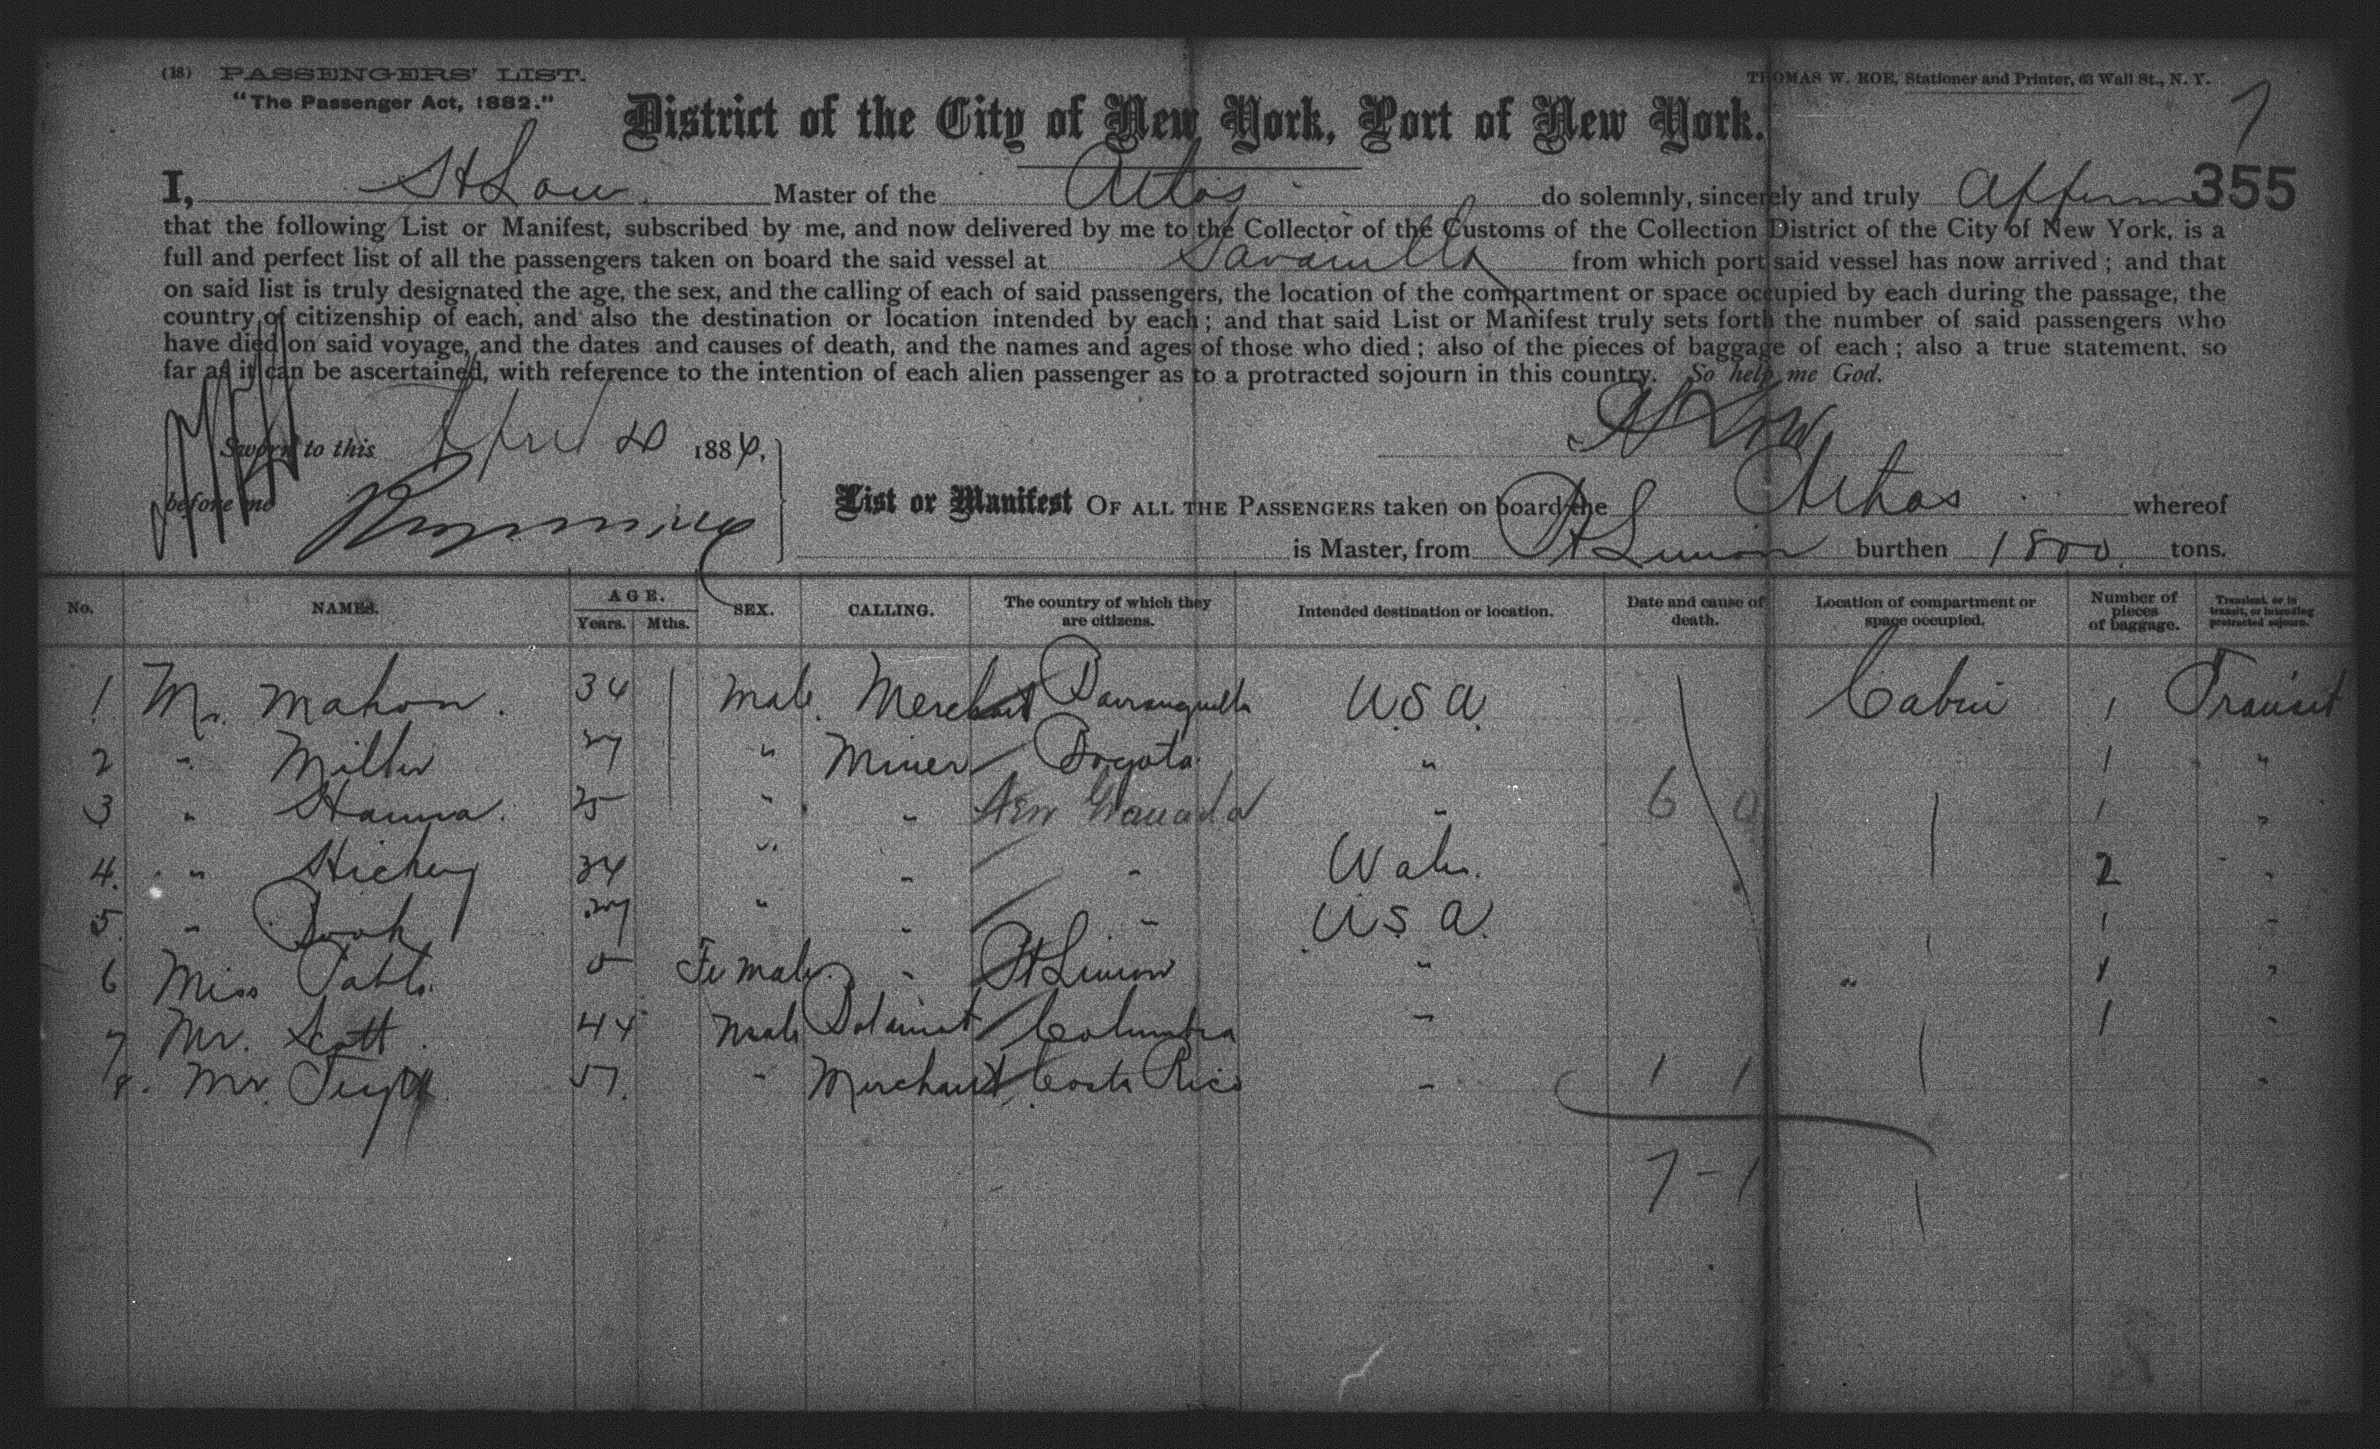 (18) PASSENGERS' LIST.
THOMAS W. ROE, Stationer and Printer, 63 Wall St., N. Y.
"The Passenger Act, 1882."
7
District of the City of New York, Port of New York.
I, Low Master of the Athos do solemnly, sincerely and truly affirm 355
that the following List or Manifest, subscribed by me, and now delivered by me to the Collector of the Customs of the Collection District of the City of New York, is a
full and perfect list of all the passengers taken on board the said vessel at Savanilla from which port said vessel has now arrived; and that
on said list is truly designated the age, the sex, and the calling of each of said passengers, the location of the compartment or space occupied by each during the passage, the
country of citizenship of each, and also the destination or location intended by each; and that said List or Manifest truly sets forth the number of said passengers who
have died on said voyage, and the dates and causes of death, and the names and ages of those who died; also of the pieces of baggage of each; also a true statement, so
far as it can be ascertained, with reference to the intention of each alien passenger as to a protracted sojourn in this country. So help me God.
Low
Sworn to this April 188
before me
List or Manifest OF ALL THE PASSENGERS taken on board the Athos whereof
is Master, from Pt Limon burthen 1800 tons.
No. NAMES. AGE. Years. Mths. SEX. CALLING. The country of which they are citizens. Intended destination or location. Date and cause of death. Location of compartment or space occupied. Number of pieces of baggage. Transient, or in transit, or intending protracted sojourn.
1 Mr. Mahon. 34 Male. Merchant Barranquilla U.S.A. Cabin 1 Transit
2 " Miller 27 " Miner Bogota " 1 "
3 " Hanna. 25 " " New Granada " 6 0 1 "
4. " Hickey 34 " " " Wales. 2 "
5. " 27 " " " U.S.A. 1 "
6 Miss 5 Female. " Pt Limon " " 1 "
7 Mr. Scott. 44 Male Columbia " 1 "
8. Mr. 57. " Merchant Costa Rica " 1 1 "
7 - 1